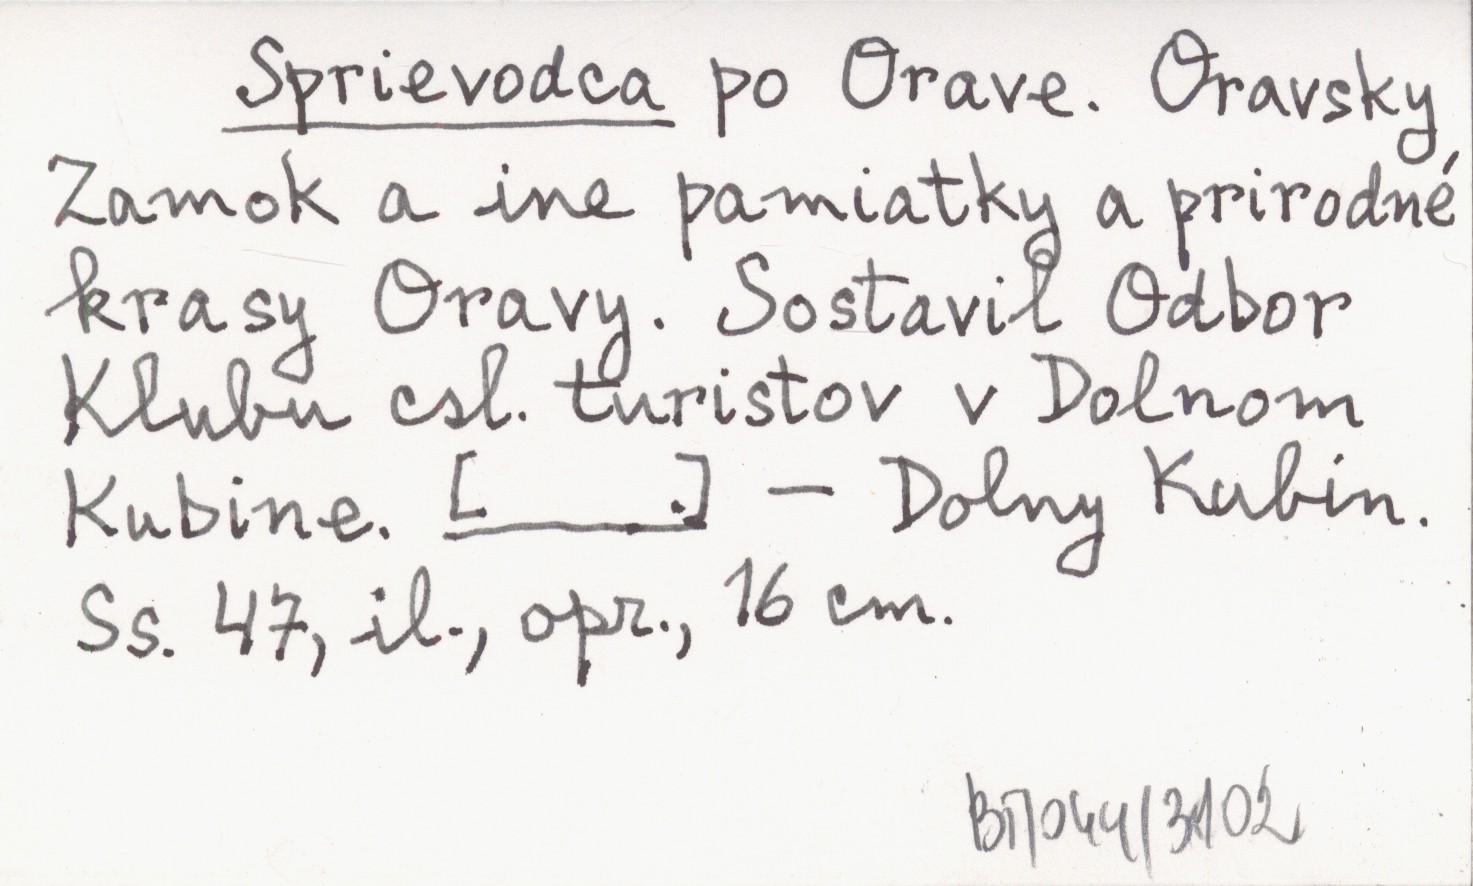 Sprievodca po Orave. Oravsky
Zamok a ine pamiatky a prirodné
krasy Oravy. Sostavil Odbor
Klubu csl. turistov v Dolnom
Kubine. [ .] — Dolny Kubin.
Ss. 47, il., opr., 16 cm.